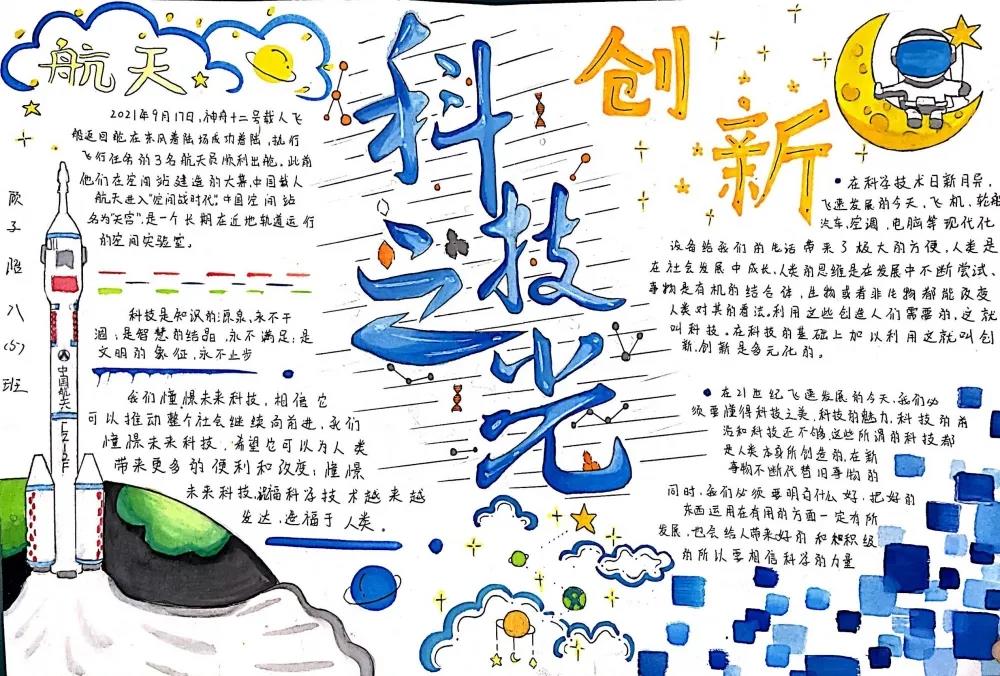 航天
2021年9月17日,神舟十二号载人飞
船返回舱在东风着陆场成功着陆,执行
飞行任务的3名航天员顺利出舱。此前
他们在空间站建造的大幕,中国载人
航天进入"空间战时代",中国空间站
名为"天宫",是一个长期在近地轨道运行
的空间实验室。
科技是知识的源泉,永不干
涸,是智慧的结晶,永不满足,是
文明的象征,永不止步
我们憧憬未来科技,相信它
可以推动整个社会继续向前进,我们
憧憬未来科技,希望它可以为人类
带来更多的便利和改变;憧憬
未来科技,祝福科学技术越来越
发达,造福于人类。
子
八
(5)
班
中国航天
科技之光
创新
在科学技术日新月异,
飞速发展的今天,飞机,轮船
汽车,空调,电脑等现代化
设备给我们的生活带来了极大的方便,人类是
在社会发展中成长,人类的思维是在发展中不断尝试、
事物是有机的结合体,生物或者非生物都能改变
人类对其的看法。利用这些创造人们需要的,这就
叫科技。在科技的基础上加以利用这就叫创
新,创新是多元化的。
在21世纪飞速发展的今天,我们必
须要懂得科技之美,科技的魅力,科技的前
沿和科技还不够,这些所谓的科技都
是人类本身所创造的,在新
事物不断代替旧事物的
同时,我们必须要明白什么好,把好的
东西运用在有用的方面一定有所
发展,也会给人带来好的和积级
的所以要相信科学的力量